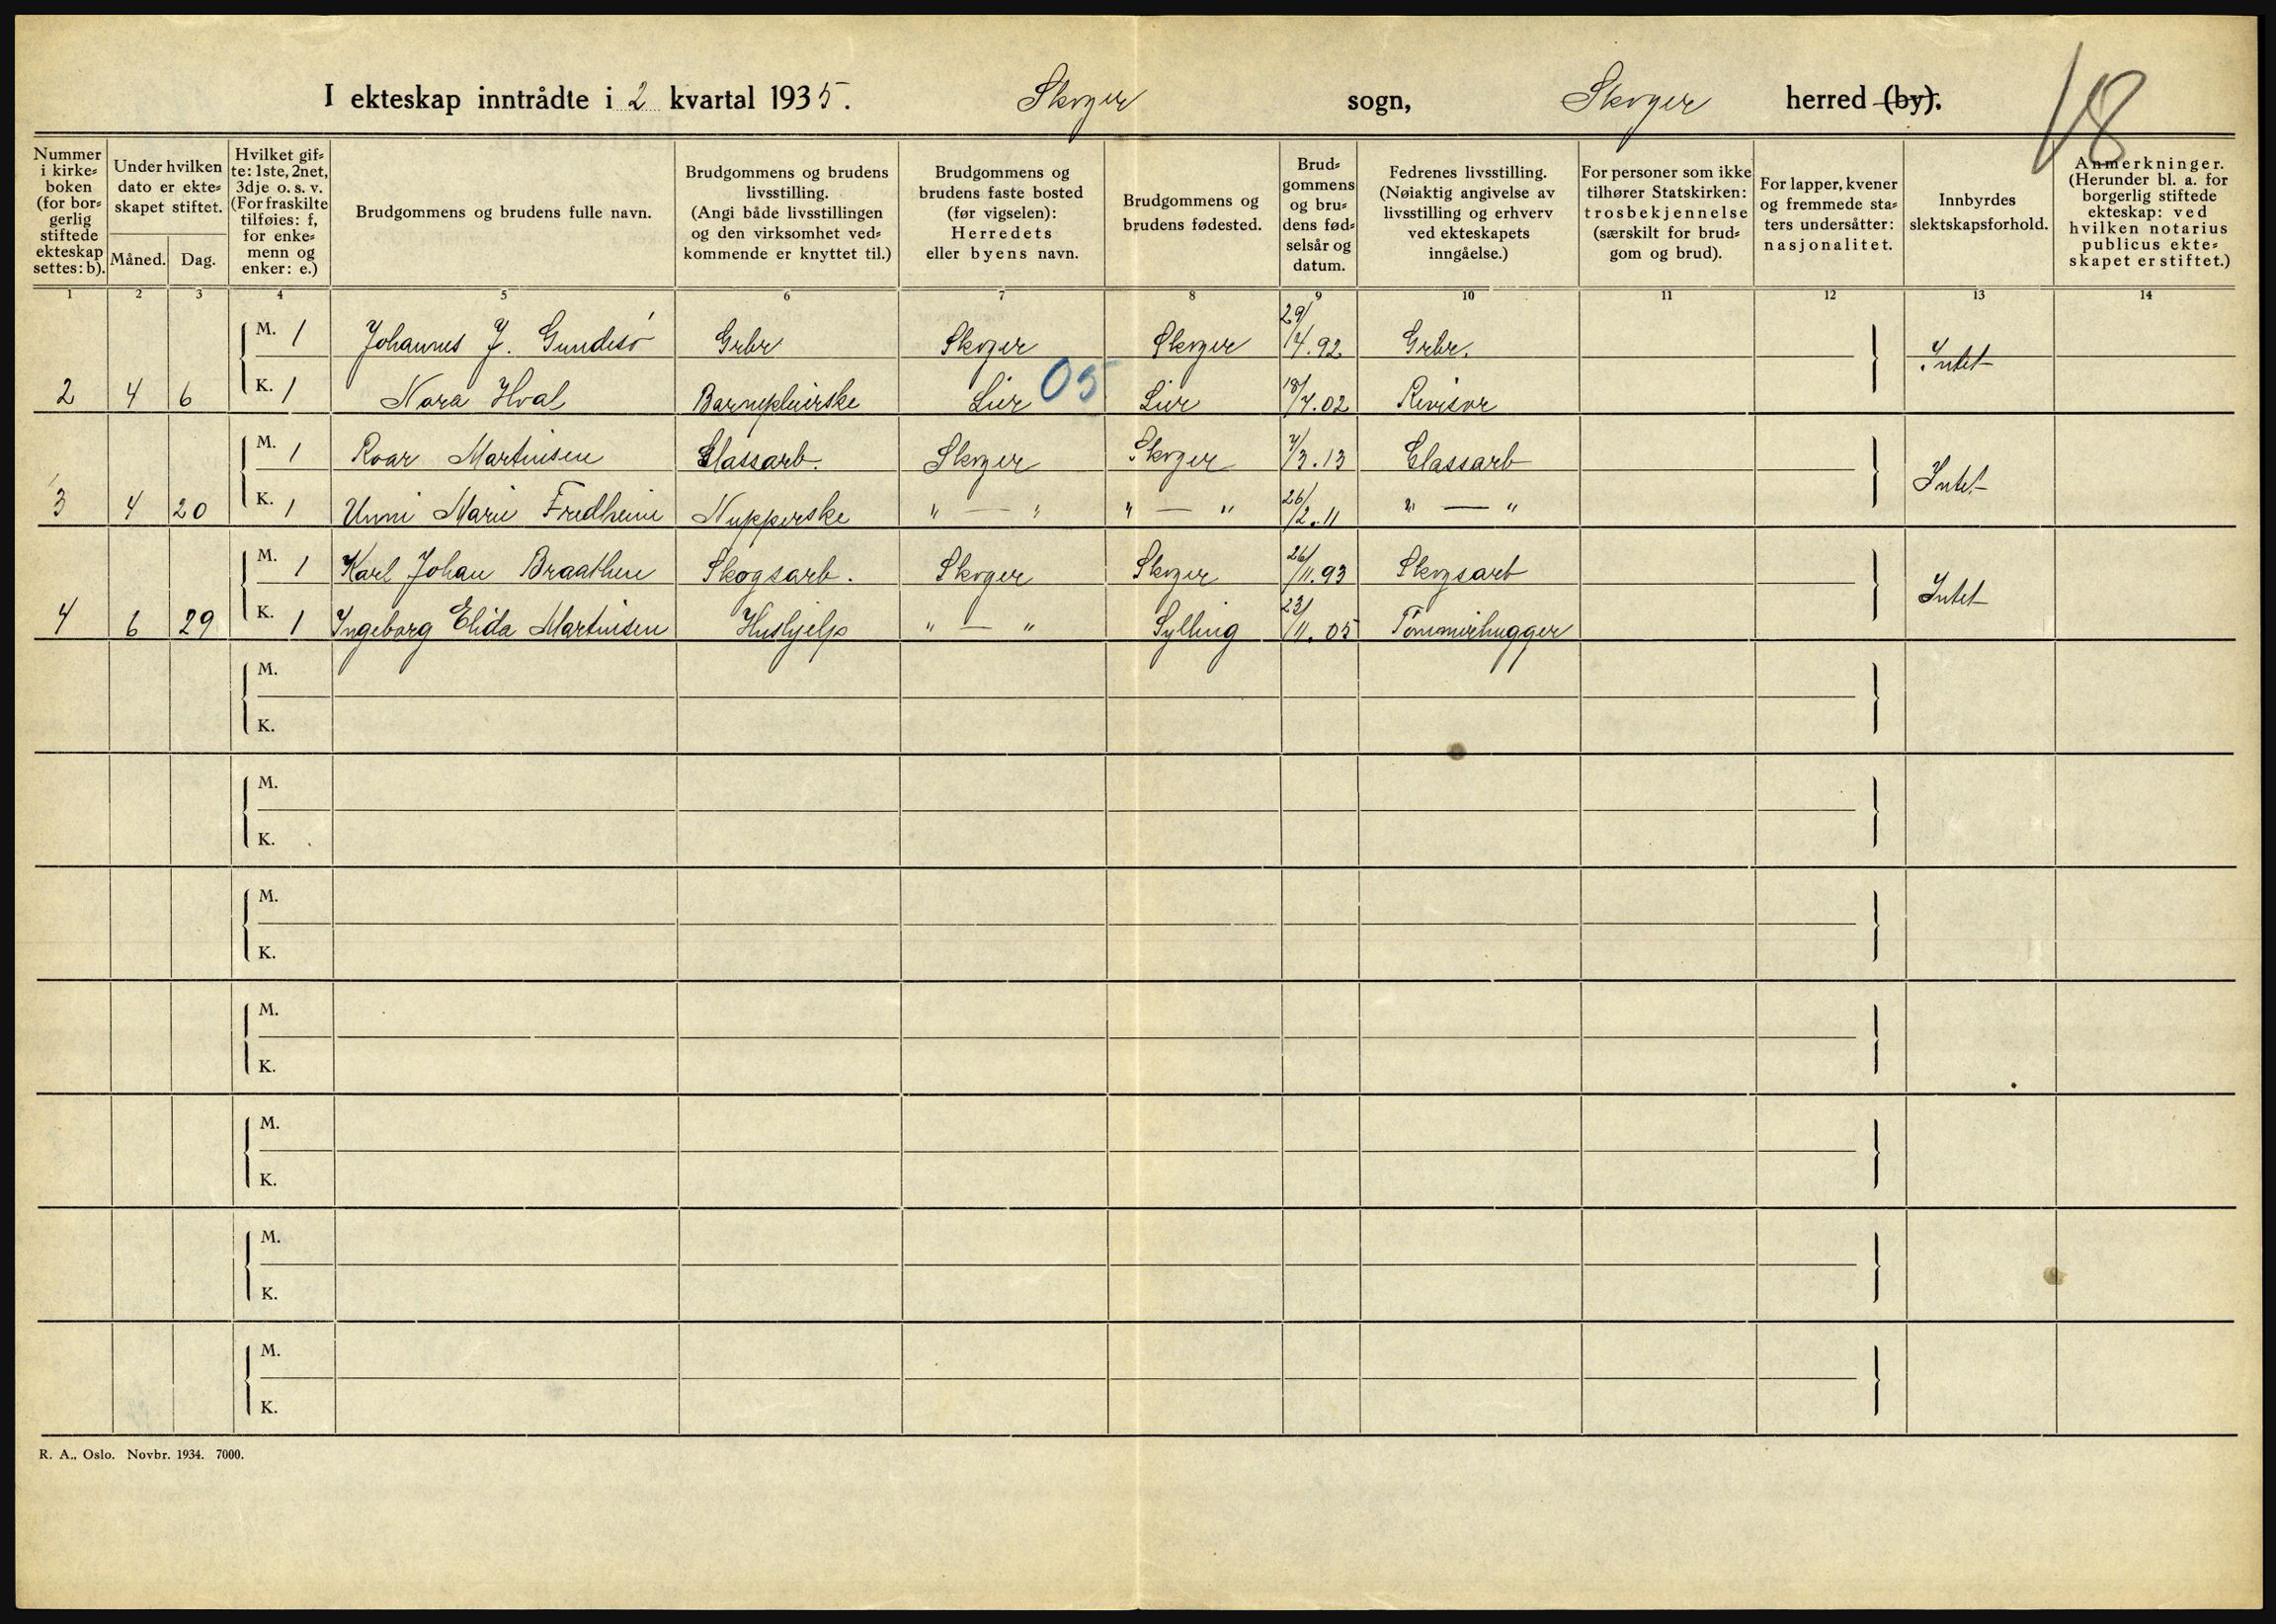 I ekteskap inntrådte i 2 kvartal 1935. Skoger sogn, Skoger herred (by).
18
Nummer i kirke=boken (for bor=gerlig stiftede ekteskap settes: b).
Under hvilken dato er ekte=skapet stiftet.
Måned. Dag.
Hvilket gif=te: 1ste, 2net, 3dje o. s. v. (For fraskilte tilføies: f, for enke=menn og enker: e.)
Brudgommens og brudens fulle navn.
Brudgommens og brudens livsstilling. (Angi både livsstillingen og den virksomhet ved=kommende er knyttet til.)
Brudgommens og brudens faste bosted (før vigselen): Herredets eller byens navn.
Brudgommens og brudens fødested.
Brud=gommens og bru=dens fød=selsår og datum.
Fedrenes livsstilling. (Nøiaktig angivelse av livsstilling og erhverv ved ekteskapets inngåelse.)
For personer som ikke tilhører Statskirken: trosbekjennelse (særskilt for brud=gom og brud).
For lapper, kvener og fremmede sta=ters undersåtter: nasjonalitet.
Innbyrdes slektskapsforhold.
Anmerkninger. (Herunder bl. a. for borgerlig stiftede ekteskap: ved hvilken notarius publicus ekte=skapet er stiftet.)
1 2 3 4 5 6 7 8 9 10 11 12 13 14
M. 1 Johannes J. Gundesø Grbr Skoger Skoger 29/4.92 Grbr. Intet
2 4 6 K. 1 Nora Hval Barnepleierske Lier 05 Lier 18/7.02 Revisor
M. 1 Roar Martinsen Glassarb. Skoger Skoger 7/3.13 Glassarb Intet
3 4 20 K. 1 Unni Marie Fredheim Nupperske " — " " — " 26/2.11 " — "
M. 1 Karl Johan Braathen Skogsarb. Skoger Skoger 26/11.93 Skogsarb Intet
4 6 29 K. 1 Ingeborg Elida Martinsen Hushjelp " — " Sylling 23/11.05 Tømmerhugger
M.
K.
M.
K.
M.
K.
M.
K.
M.
K.
M.
K.
M.
K.
R. A., Oslo. Novbr. 1934. 7000.